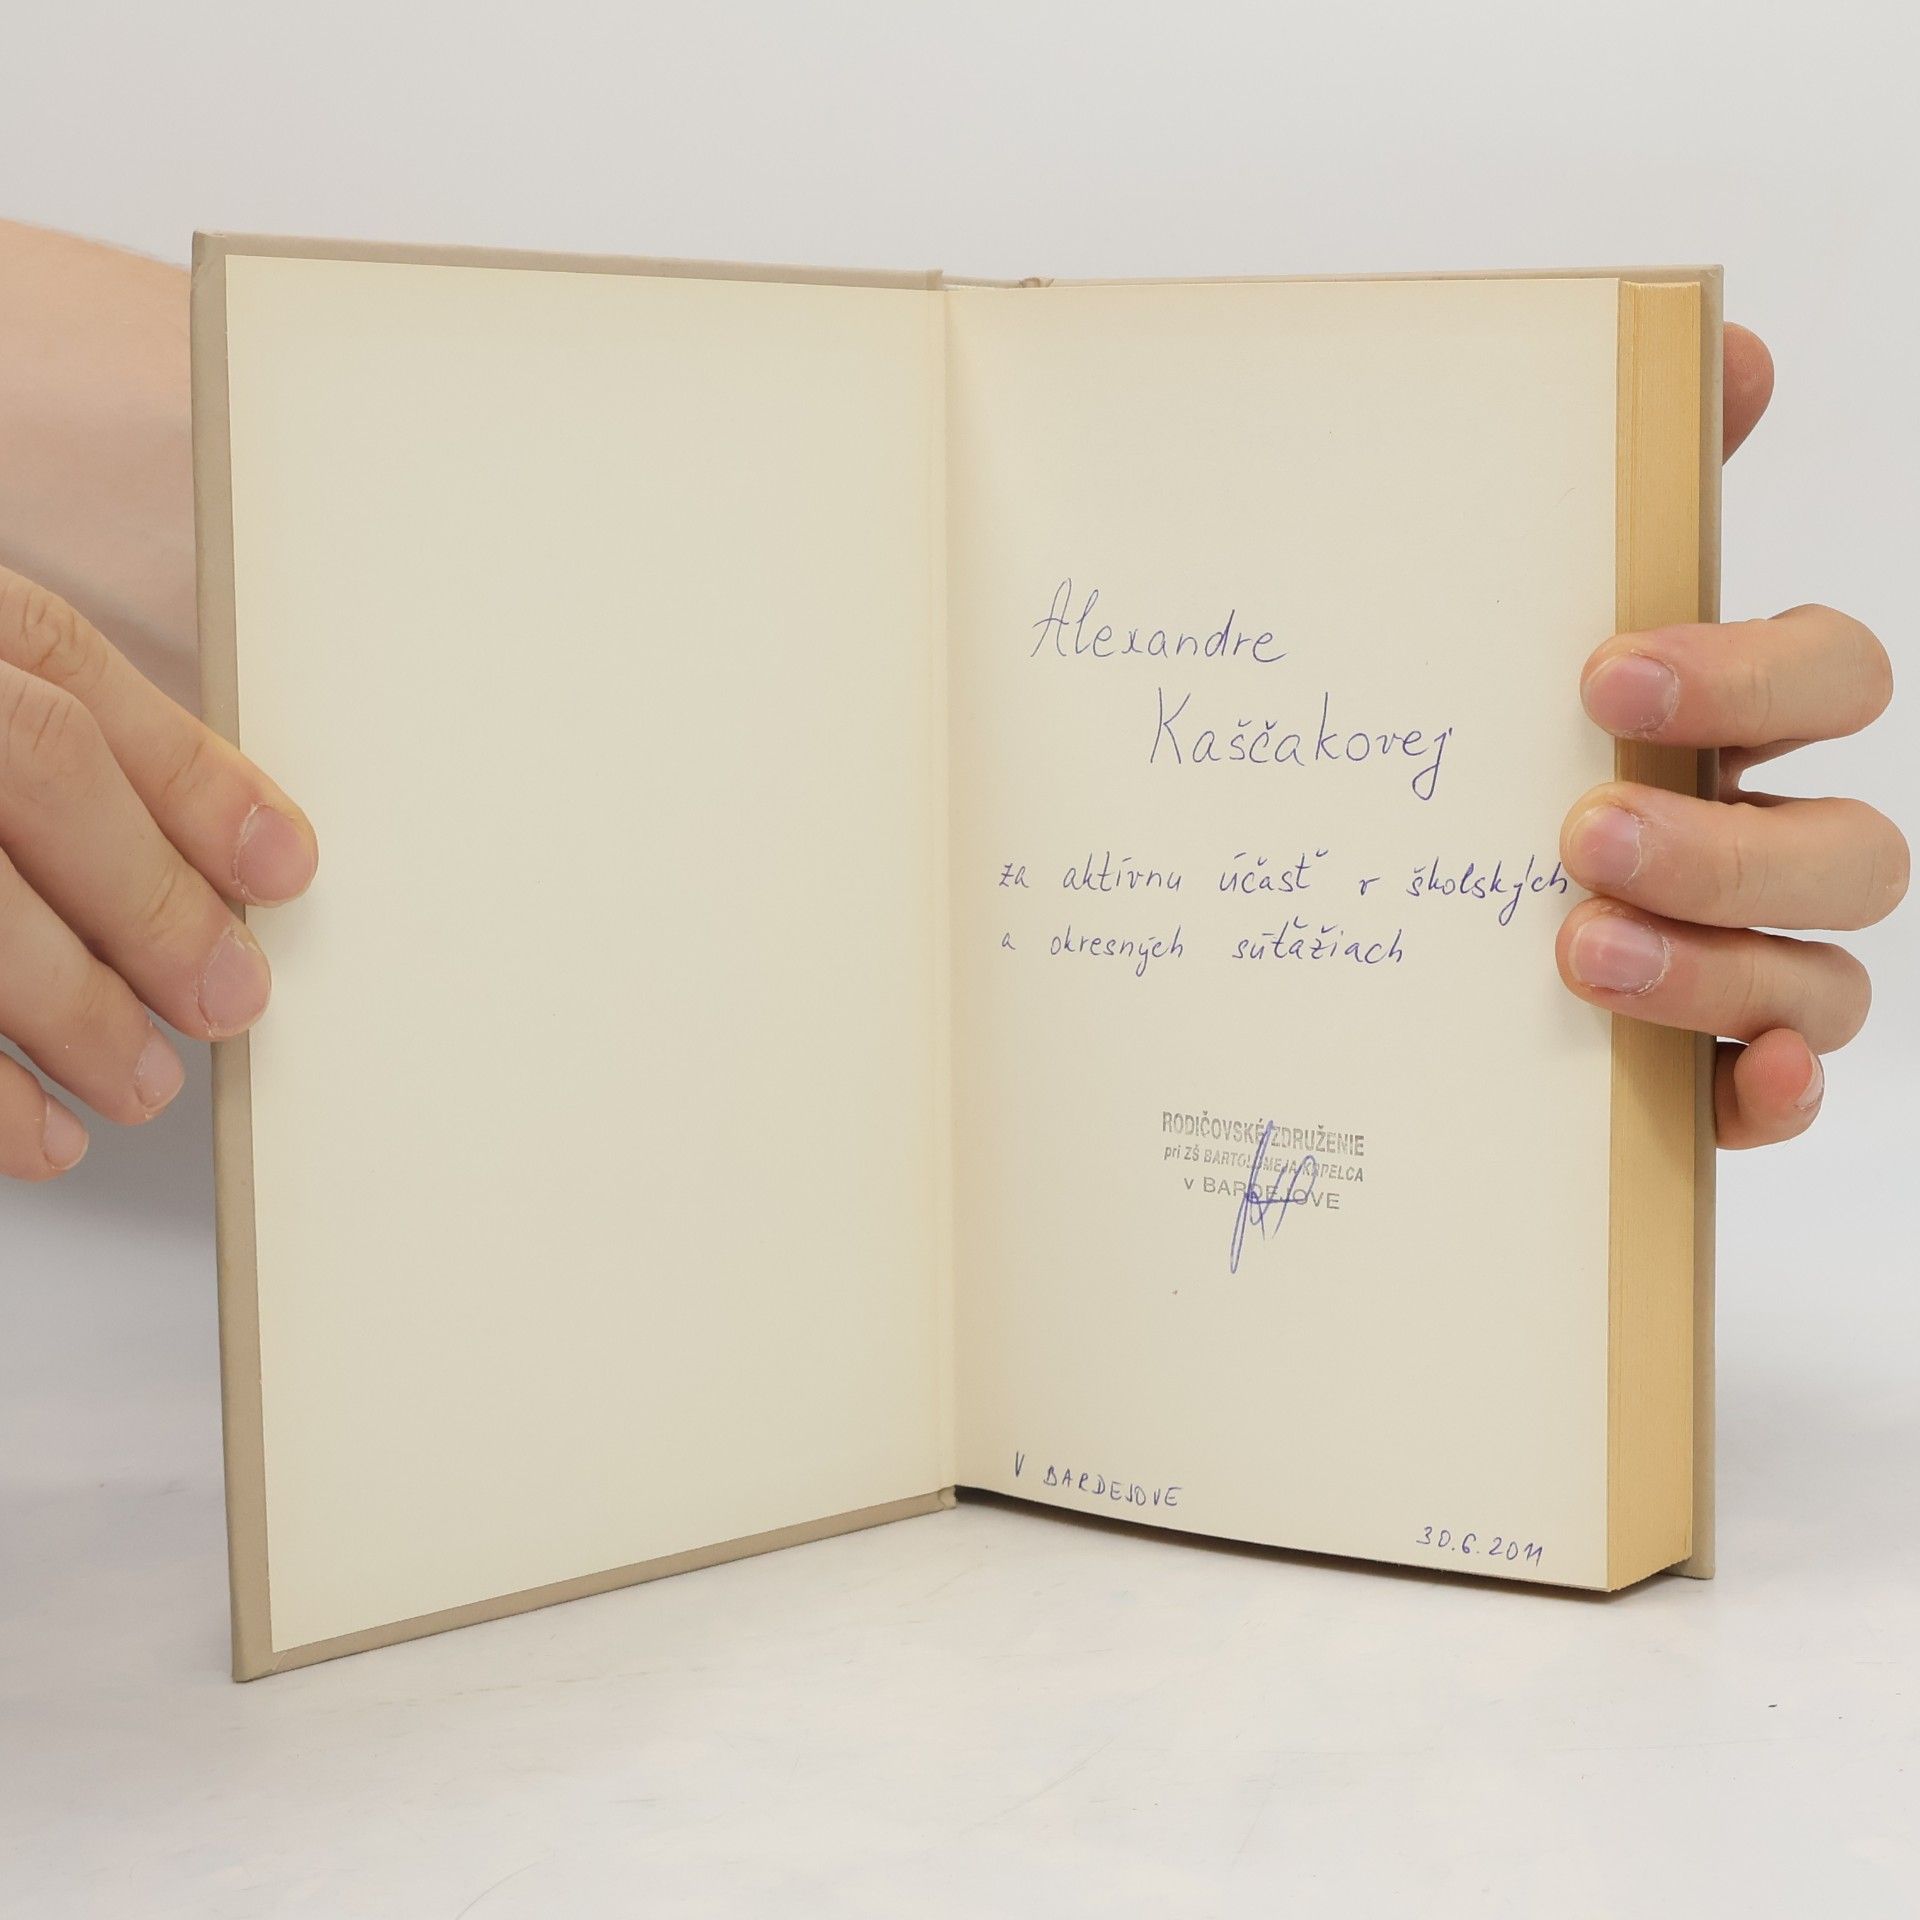 Alexandre
Kaščakovej
za aktívnu účasť v školských
a okresných súťažiach
RODIČOVSKÉ ZDRUŽENIE
pri ZŠ BARTOLOMEJA KRPELCA
v BARDEJOVE
V BARDEJOVE
30.6.2011